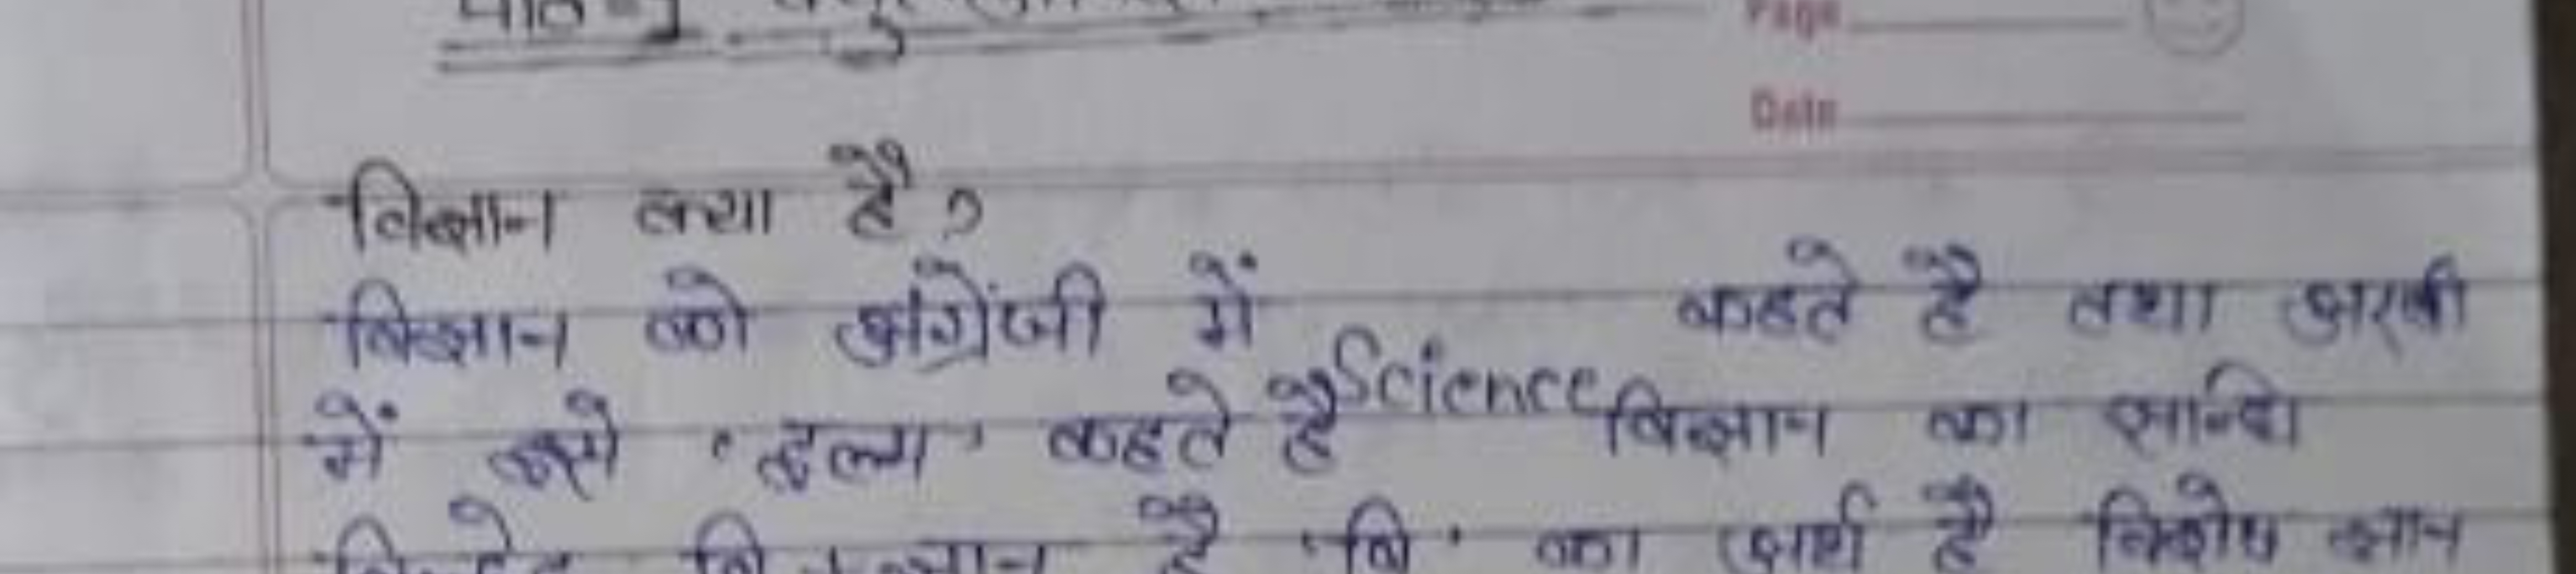 पाठ-1
Page
Date
विज्ञान क्या है ?
विज्ञान को अंग्रेंजी में Science कहते है तथा अरबी
में इसे 'इल्म' कहते है विज्ञान का सन्धि
विच्छेद वि + ज्ञान है 'वि' का अर्थ है विशेष ज्ञान